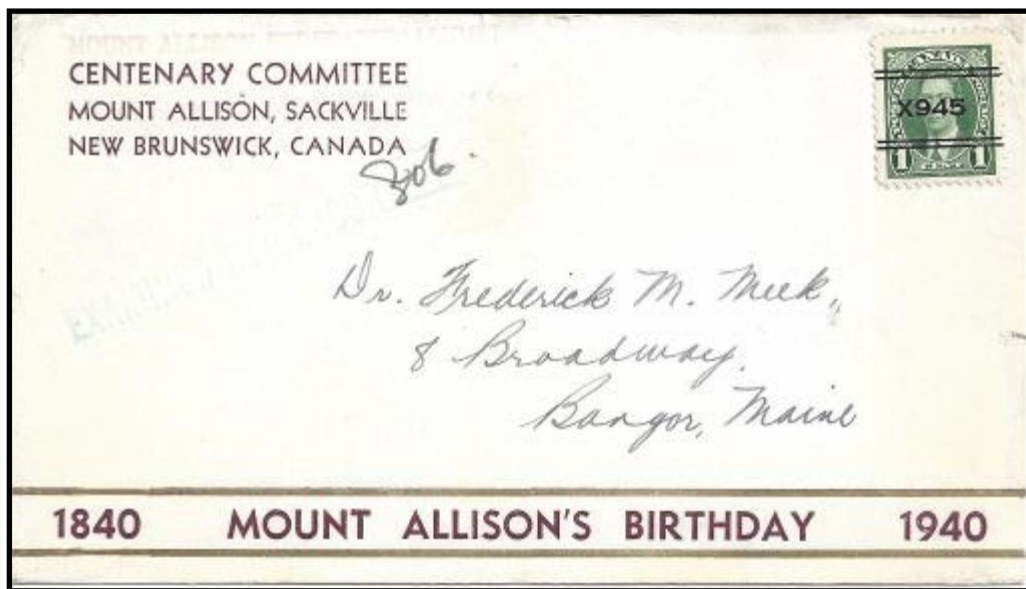 CENTENARY COMMITTEE
MOUNT ALLISON, SACKVILLE
NEW BRUNSWICK, CANADA
306
CANADA
X945
1 1
Dr. Frederick M. Meek,
8 Broadway,
Bangor, Maine
1840 MOUNT ALLISON'S BIRTHDAY 1940